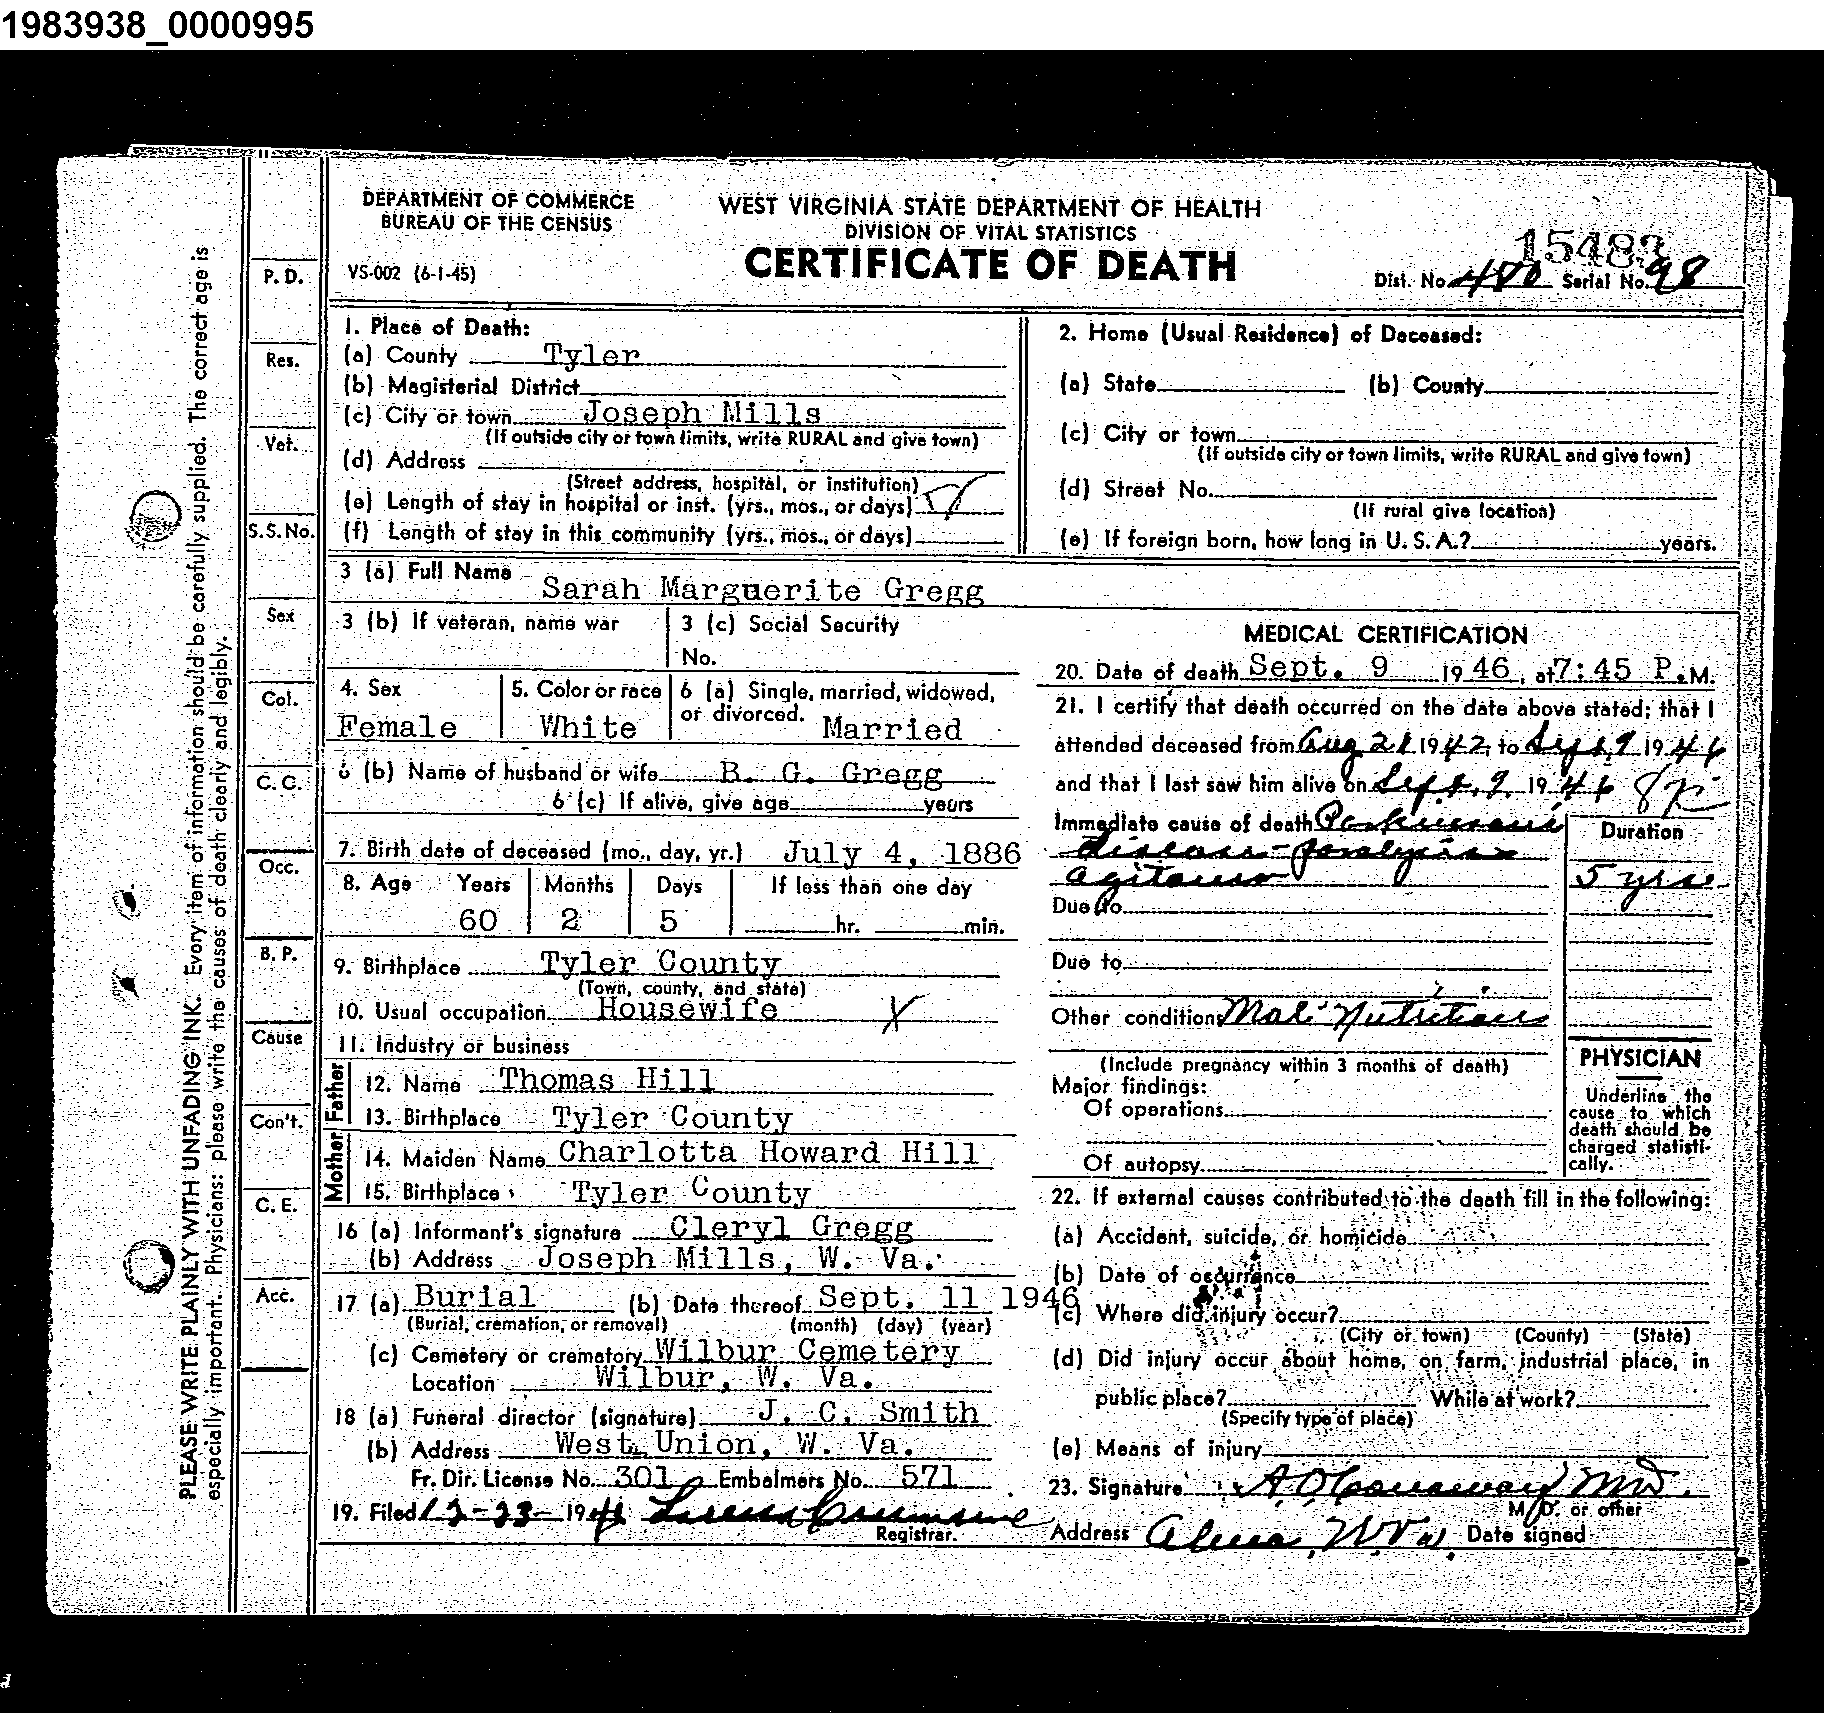 1983938_0000995
DEPARTMENT OF COMMERCE
BUREAU OF THE CENSUS
VS-002 (6-1-45)
WEST VIRGINIA STATE DEPARTMENT OF HEALTH
DIVISION OF VITAL STATISTICS
CERTIFICATE OF DEATH
15483
Dist. No. 480 Serial No. 98
PLEASE WRITE PLAINLY WITH UNFADING INK. Every item of information should be carefully supplied. The correct age is
especially important. Physicians: please write the causes of death clearly and legibly.
P. D.
Res.
Vet.
S.S. No.
Sex
Col.
C. C.
Occ.
B. P.
Cause
Con't.
C. E.
Acc.
1. Place of Death:
(a) County Tyler
(b) Magisterial District
(c) City or town Joseph Mills
(If outside city or town limits, write RURAL and give town)
(d) Address
(Street address, hospital, or institution)
(e) Length of stay in hospital or inst. (yrs., mos., or days)
(f) Length of stay in this community (yrs., mos., or days)
2. Home (Usual Residence) of Deceased:
(a) State (b) County
(c) City or town
(If outside city or town limits, write RURAL and give town)
(d) Street No.
(If rural give location)
(e) If foreign born, how long in U. S. A.? years.
3 (a) Full Name Sarah Marguerite Gregg
3 (b) If veteran, name war
3 (c) Social Security
No.
4. Sex
Female
5. Color or race
White
6 (a) Single, married, widowed,
or divorced. Married
6 (b) Name of husband or wife B. G. Gregg
6 (c) If alive, give age years
7. Birth date of deceased (mo., day, yr.) July 4, 1886
8. Age Years Months Days If less than one day
60 2 5 hr. min.
9. Birthplace Tyler County
(Town, county, and state)
10. Usual occupation Housewife X
11. Industry or business
Father
12. Name Thomas Hill
13. Birthplace Tyler County
Mother
14. Maiden Name Charlotta Howard Hill
15. Birthplace Tyler County
16 (a) Informant's signature Cleryl Gregg
(b) Address Joseph Mills, W. Va.
17 (a) Burial (b) Date thereof Sept. 11 1946
(Burial, cremation, or removal) (month) (day) (year)
(c) Cemetery or crematory Wilbur Cemetery
Location Wilbur, W. Va.
18 (a) Funeral director (signature) J. C. Smith
(b) Address West Union, W. Va.
Fr. Dir. License No. 301 Embalmers No. 571
19. Filed 12-23- 1946
Registrar.
MEDICAL CERTIFICATION
20. Date of death Sept. 9 1946, at 7:45 P.M.
21. I certify that death occurred on the date above stated; that I
attended deceased from Aug 21 1942, to Sept 9 1946
and that I last saw him alive on Sept. 9, 1946
Immediate cause of death Parkinsons
disease - paralysis
agitans
Duration
5 yrs
Due to
Due to
Other conditions Mal Nutrition
(Include pregnancy within 3 months of death)
Major findings:
Of operations
Of autopsy
PHYSICIAN
Underline the
cause to which
death should be
charged statisti-
cally.
22. If external causes contributed to the death fill in the following:
(a) Accident, suicide, or homicide
(b) Date of occurrence
(c) Where did injury occur?
(City or town) (County) (State)
(d) Did injury occur about home, on farm, industrial place, in
public place? While at work?
(Specify type of place)
(e) Means of injury
23. Signature A. O. Conaway MD.
M. D. or other
Address Alma, W. Va. Date signed